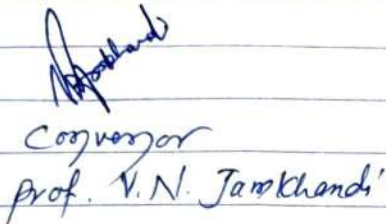 Convenor
prof. V. N. Jamkhandi